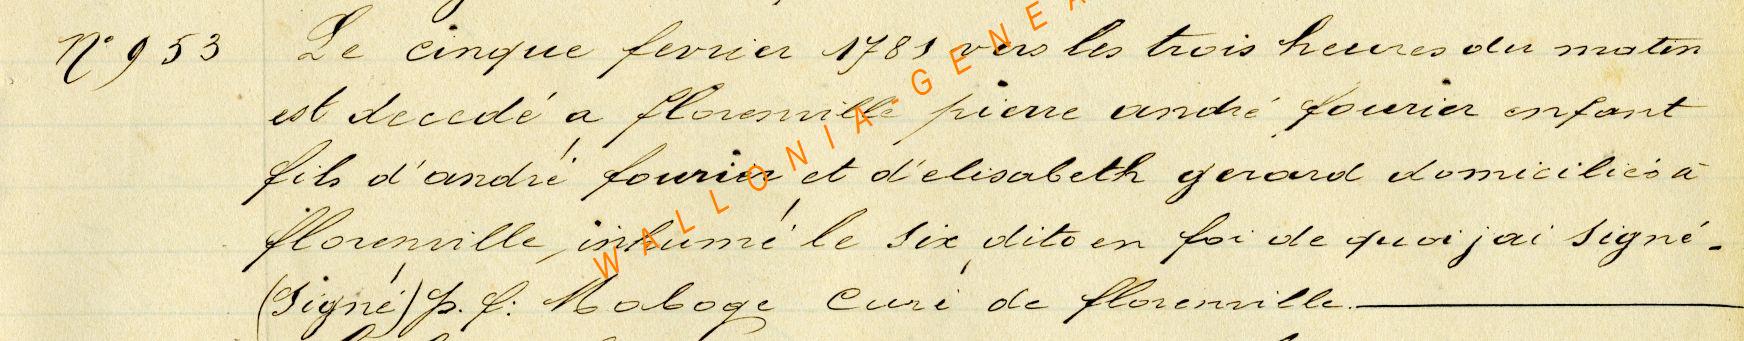 N° 953 Le cinque fevrier 1781 vers les trois heures du matin
est decedé a florenville pierre andré fourier enfant
fils d'andré fourier et d'elisabeth gerard domiciliés à
florenville, inhumé le six dito en foi de quoi j'ai signé.
(signé) p. f: Maboge curé de florenville.
WALLONIA-GENEA